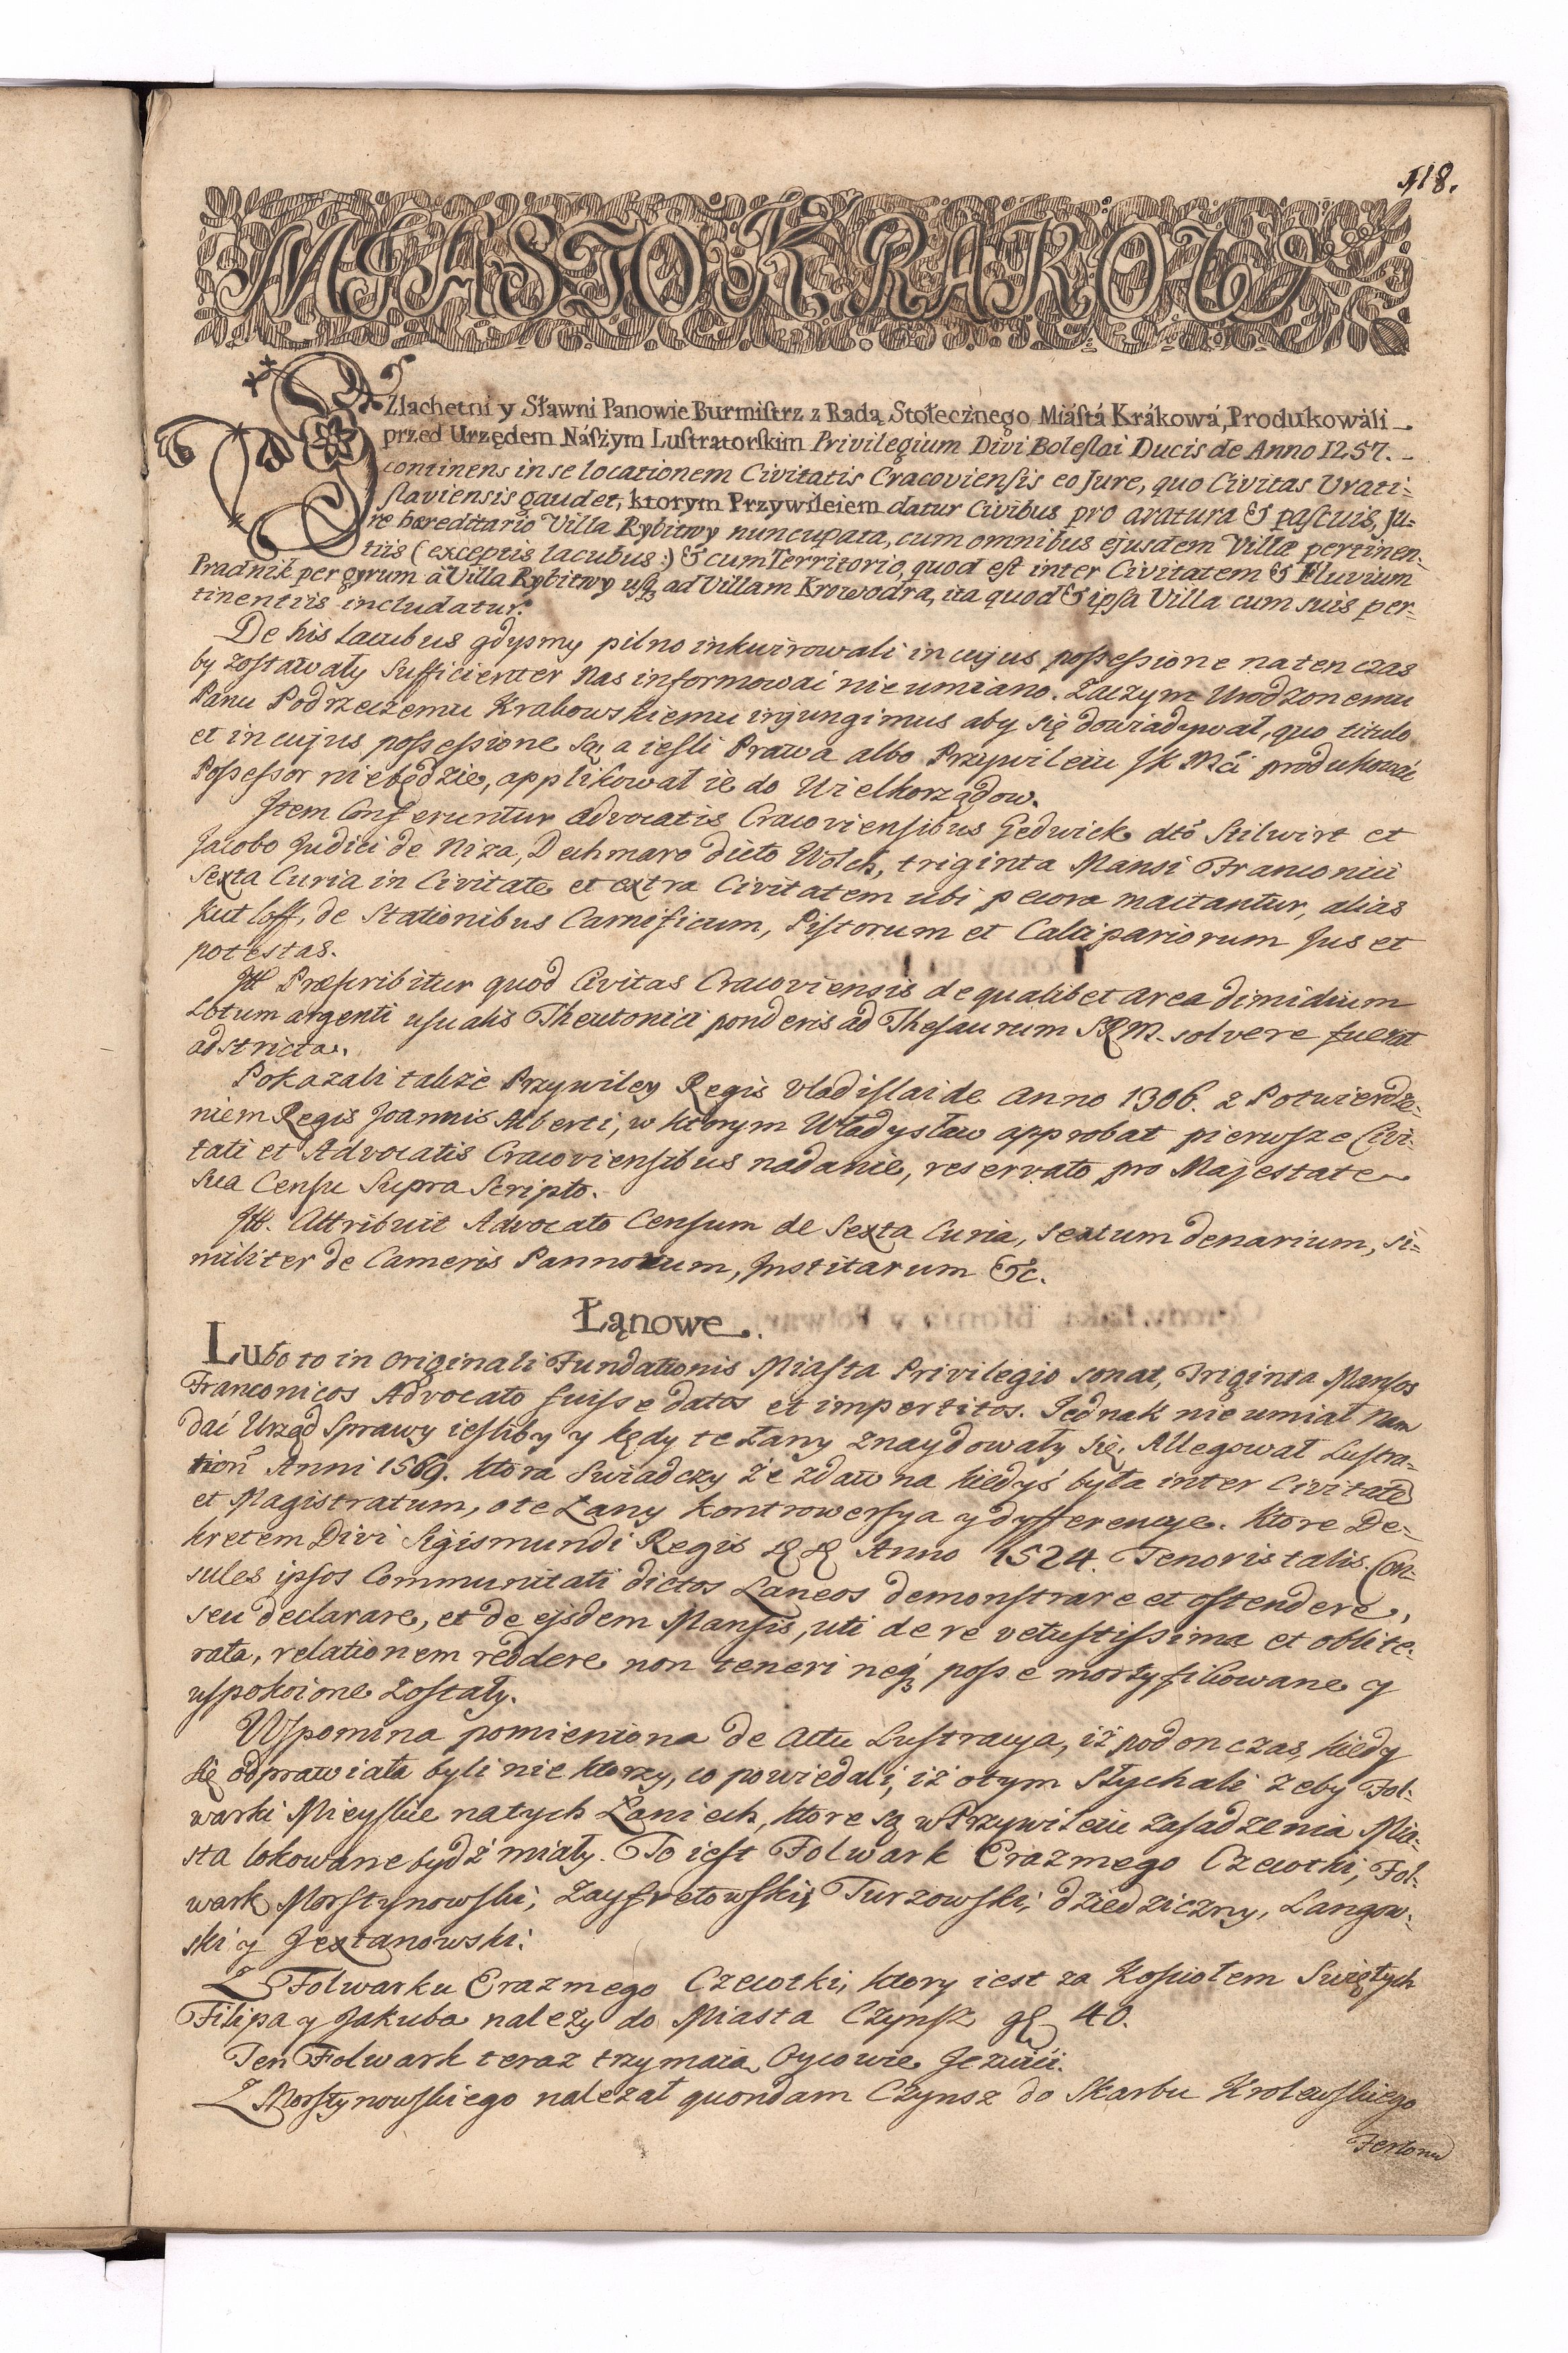 118.
MIASTO KRAKOW
SZlachetni y Sławni Panowie Burmiſtrz z Radą Stołecżnego Miáſtá Krákowá, Produkowáli
przed Urzędem Náſzym Luſtratorſkim Privilegium Divi Boleſlai Ducis de Anno 1257.
continens in se locationem Civitatis Cracoviensis eo Jure, quo Civitas Vrati-
slaviensis gaudet, ktorym Przywileiem datur Civibus pro aratura & pascuis, Ju-
re hæreditario Villa Rybitwy nuncupata, cum omnibus ejusdem Villæ pertinen-
tiis (exceptis lacubus:) & cum Territorio, quod est inter Civitatem & Fluvium
Pradnik per gyrum à Villa Rybitwy usq; ad Villam Krowodra, ita quod & ipsa Villa cum suis per-
tinentiis includatur.
De his lacubus gdysmy pilno inkwirowali in cujus possessione na ten czas
by zostawały sufficienter Nas informowai nie umiano. Zaczym Urodzonemu
Panu Podrzeczemu Krakowskiemu injungimus aby się dowiadywał, quo titulo
et in cujus possessione są, a iesli Prawa albo Przywileiu JK Mći produkowai
Possessor niebędzie, applikował ie do Wielkorządow.
Item Conferuntur Advocatis Cracoviensibus Gedwick dtó Stilwirt et
Jacobo Judici de Niza, Dechmaro dicto Wolck, triginta Mansi Franconici
Sexta Curia in Civitate et extra Civitatem ubi pecora mactantur, alias
Kutloff, de Stationibus Carnificum, Pistorum et Calcipariorum Jus et
potestas.
Itt Præscribitur quod Civitas Cracoviensis de qualibet area dimidium
Lotum argenti usualis Theutonici ponderis ad Thesaurum SRM. solvere fuerat
adstricta.
Pokazali takżé Przywiley Regis Vladislai de Anno 1306. z Potwierdze-
niem Regis Joannis Alberti, w ktorym Władysław approbat pierwsze Civi-
tati et Advocatis Cracoviensibus nadanie, reservato pro Majestate
sua Censu supra scripto.
Itt. Attribuit Advocato Censum de Sexta Curia, sextum denarium, si-
militer de Cameris Pannorum, Institarum &c.
Łąnowe.
Lubo to in Originali Fundationis Miasta Privilegio sonat, Triginta Mansos
Franconicos Advocato fuisse datos et impertitos. Jednak nie umiał Nam
dai Urząd Sprawy iesliby y kędy te Łany znaydowały się. Allegował Lustra-
tion̄ Anni 1569. ktora swiadczy żé zdawna kiedyś była inter Civitatē
et Magistratum, o te Łany kontrowersya y dyfferencye. Ktore De-
kretem Divi Sigismundi Regis &c Anno 1524. Tenoris talis. Con-
sules ipsos Communitati dictos Laneos demonstrare et ostendere,
seu declarare, et de ejsdem Mansis, uti de re vetustissima et oblite-
rata, relationem reddere non teneri neq; posse mortyfikowane y
uspokoione zostały.
Wspomina pomieniona de Actu Lustracya, iż pod on czas, kiedy
się odprawiała byli niektorzy, co powiedali, iż o tym słychali zeby Fol-
warki Mieyskie na tych Łaniech, ktore są w Przywileiu zasadzenia Mia-
sta lokowane bydź miały. To iest Folwark Erazmego Czeczotki, Fol-
wark Morstynowski, Zayfretowski, Turzowski, dziedziczny, Langow-
ski y Jextanowski.
Z Folwarku Erazmego Czeczotki, ktory iest za Kosciołem Swiętych
Filipa y Jakuba nalezy do Miasta Czynsz gł 40.
Ten Folwark teraz trzymaią Oycowie Jezuici.
Z Morstynowskiego nalezał quondam Czynsz do Skarbu Krolewskiego
Fertonū